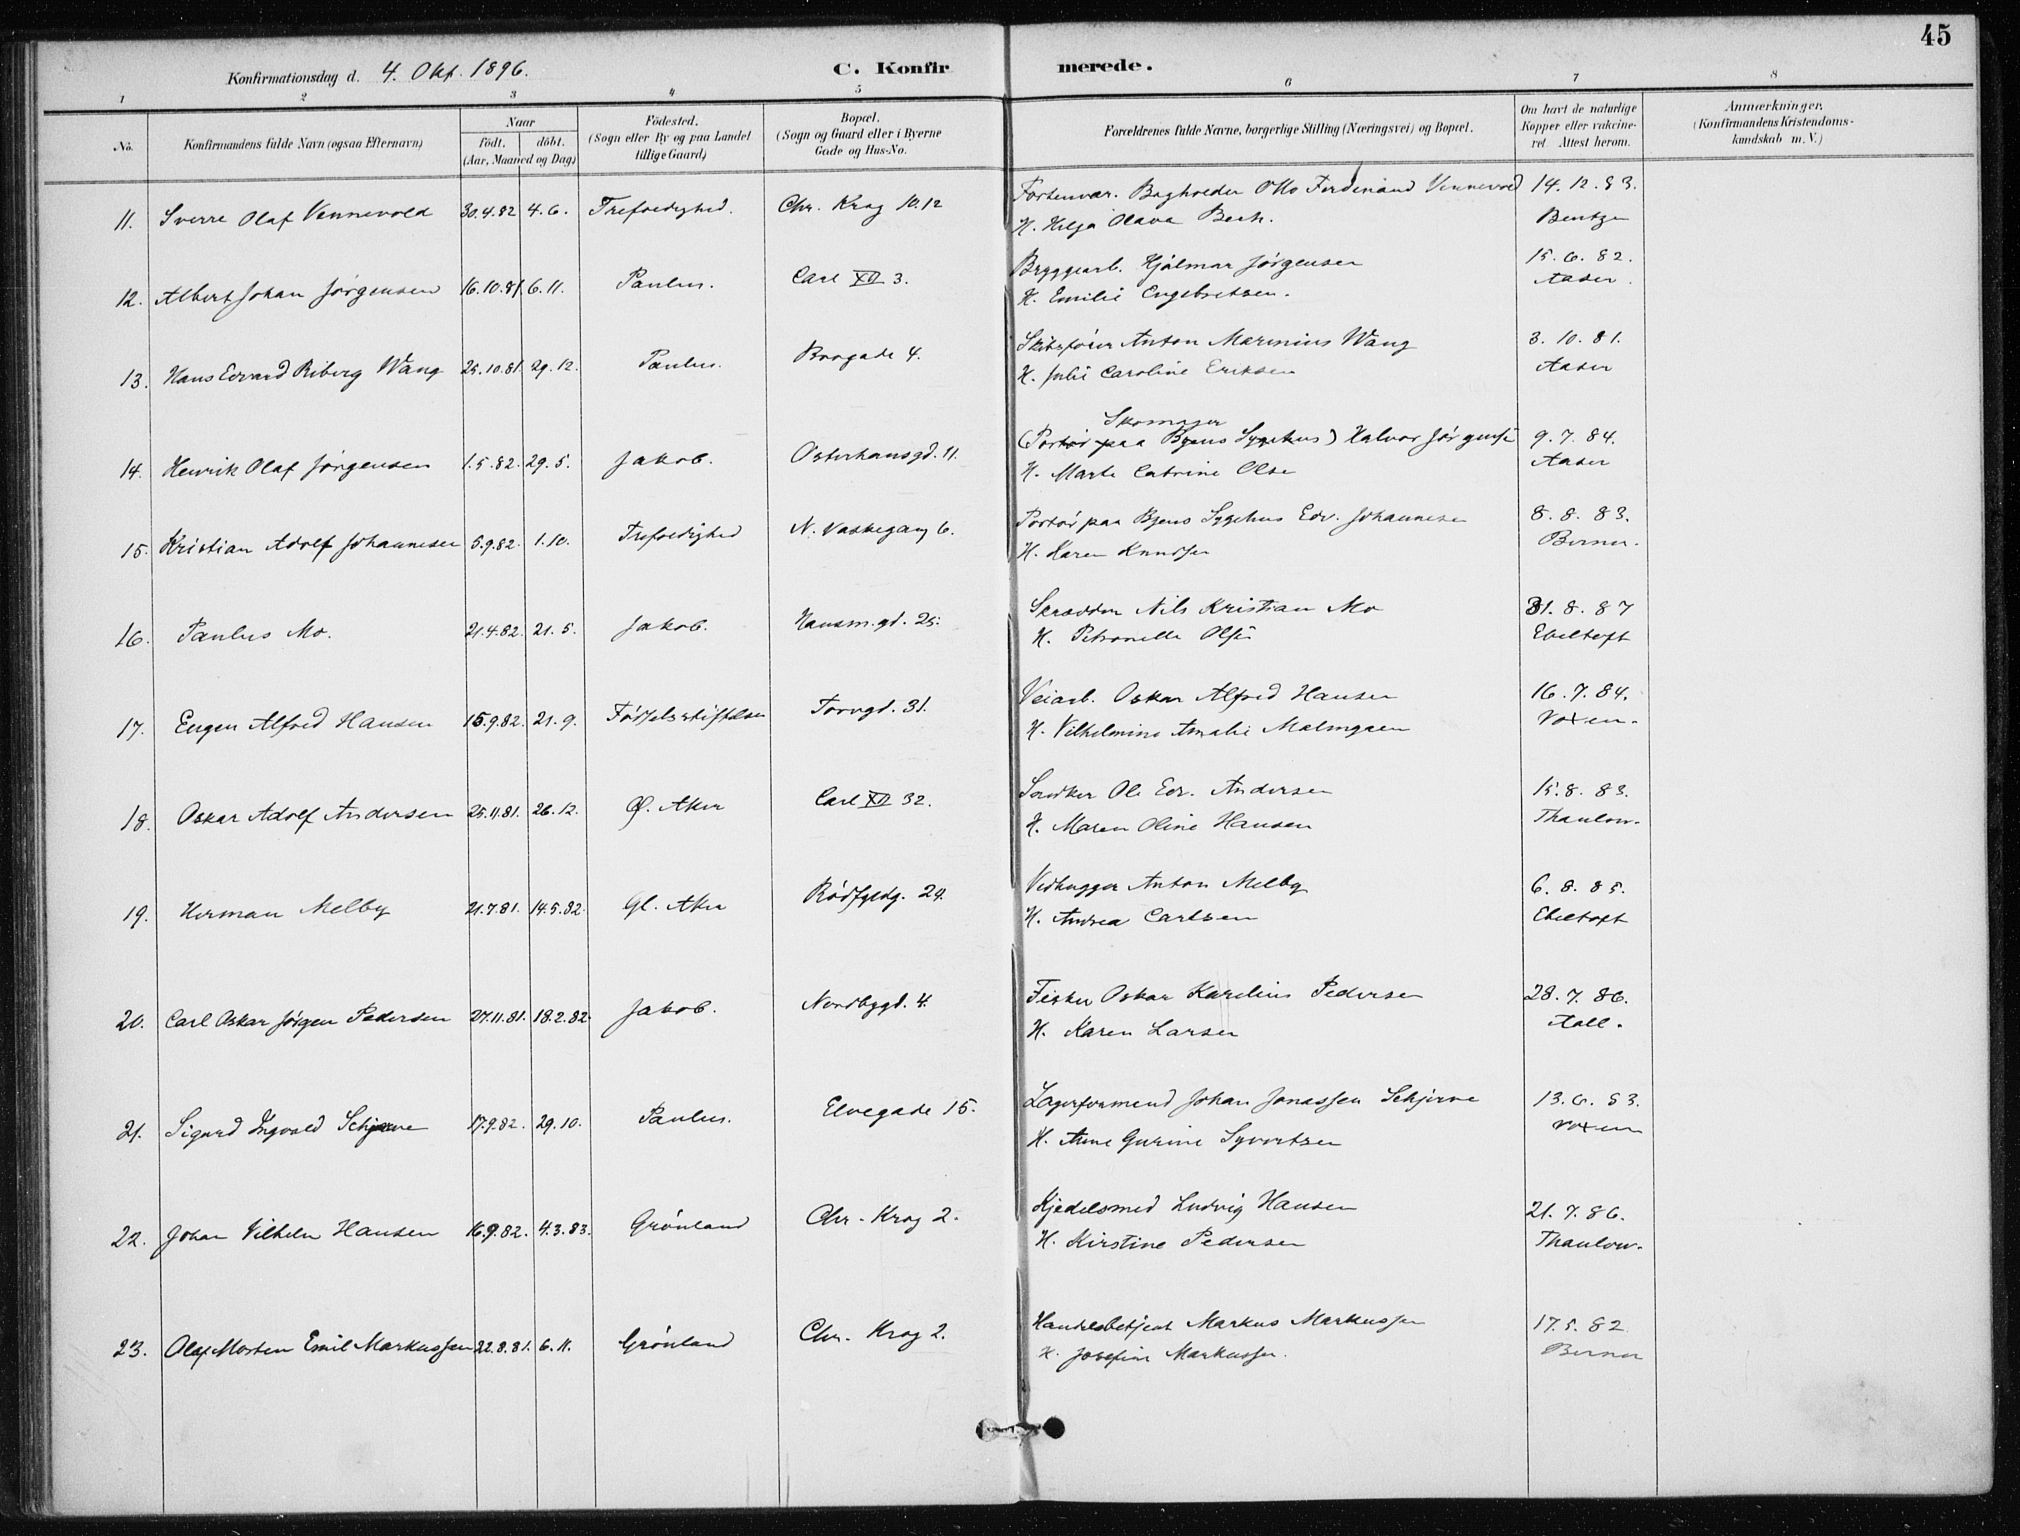 45
Konfirmationsdag d. 4. Okt. 1896. C. Konfir merede.
1 2 3 4 5 6 7 8
No. Konfirmandens fulde Navn (ogsaa Efternavn) Naar födt. döbt. (Aar, Maaned og Dag) Födested. (Sogn eller By og paa Landet tillige Gaard) Bopæl. (Sogn og Gaard eller i Byerne Gade og Hus-No. Forældrenes fulde Navne, borgerlige Stilling (Næringsvei) og Bopæl. Om havt de naturlige Kopper eller vakcineret. Attest herom. Anmærkninger. (Konfirmandens Kristendomskundskab m. V.)
11. Sverre Olaf Vennevold 30.4.82 4.6. Trefoldighed. Chr. Krog 10.12 Otto Ferdinand Vennevold 14.12.83.
H. Helga Olava Bech. Bentzen
12. Albert Johan Jørgensen 16.10.81 6.11. Paulus. Carl XII 3. Bryggearb. Hjalmar Jørgensen 15.6.82.
H. Emilie Engebretsen. Aaser.
13. Hans Edvard Riberg Wang 25.10.81. 29.12. Paulus. Brogade 4. Anton Marinius Wang 3.10.81.
H. Julie Caroline Eriksen Aaser
Skomager
14. Henrik Olaf Jørgensen 1.5.82. 29.5. Jakob. Osterhausgd. 11. (Portør paa Byens Sygehus) Halvor Jørgensen 9.7.84.
H. Marte Catrine Olsen Aaser
15. Kristian Adolf Johannesen 5.9.82. 1.10. Trefoldighed N. Vaskegang 6. Portør paa Byens Sygehus Edv. Johannesen 8.8.83.
H. Karen Knudsen Berner.
16. Paulus Mo. 21.4.82. 21.5. Jakob. Hausm.gd. 25. Skrædder Nils Kristian Mo 31.8.87
H. Petronelle Olsen Ebeltoft
17. Eugen Alfred Hansen 15.9.82. 21.9. Fødselsstiftelsen Torvgd. 31. Veiarb. Oskar Alfred Hansen 16.7.84.
H. Vilhelmine Amalie Malmgaen Voxen.
18. Oskar Adolf Andersen 25.11.81. 26.12. Ø. Aker Carl XII 32. Ole Edv. Andersen 15.8.83.
H. Maren Oline Hansen Thaulow.
19. Herman Melby 21.7.81. 14.5.82. Gl. Aker Rødfyldg. 24. Vedhugger Anton Melby 6.8.85.
H. Andrea Carlsen Ebeltoft
20. Carl Oskar Jørgen Pedersen 27.11.81. 18.2.82. Jakob. Nordbygd. 4. Fisker Oskar Karelius Pedersen 28.7.86.
H. Karen Larsen Aall.
21. Sigurd Ingvald Schjerve 17.9.82. 29.10. Paulus. Elvegade 15. Lagerformend Johan Jonassen Schjerve 13.6.83.
H. Anne Gurine Syvertsen Voxen
22. Johan Vilhelm Hansen 16.9.82. 4.3.83. Grønland Chr. Krog 2. Kjedelsmed Ludvig Hansen 21.7.86.
H. Kirstine Pedersen Thaulow.
23. Olaf Morten Emil Markussen 22.8.81. 6.11. Grønland Chr. Krog 2. Handelsbetjent Markus Markussen 17.5.82
H. Josefine Markussen. Berner